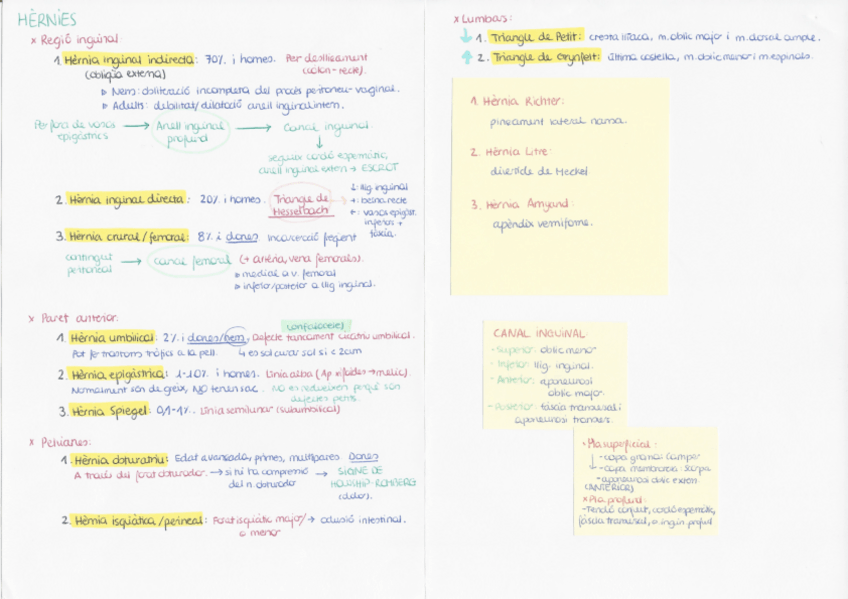 HÈRNIES
x Regió inguinal:
1. Hèrnia inguinal indirecta: 70% i homes. Per deslliçament
(obliqua externa) (còlon-recte).
▷ Nens: obliteració incompleta del procés peritoneu-vaginal.
▷ Adults: debilitat/dilatació anell inguinal intern.
Per fora de vasos → Anell inguinal → Canal inguinal
epigàstrics profund
↓
seguir cordó espermàtic,
anell inguinal extern → ESCROT
2. Hèrnia inguinal directa: 20% i homes. Triangle de
Hesselbach
↓: llig inguinal
→: benna recte
←: vasos epigàst.
inferiors +
fàscia.
3. Hèrnia crural/femoral: 8% i dones. Incarceració freqüent
contingut → canal femoral (+ artèria, vena femorals).
peritoneal
▷ medial a v. femoral
▷ inferior/posterior a llig inguinal.
x Paret anterior:
confusions
1. Hèrnia umbilical: 2% i dones/nens. Defecte tancament cicatriu umbilical.
Pot fer trastorns tròfics a la pell. ↳ es sol curar sol si < 2cm
2. Hèrnia epigàstrica: 1-10% i homes. Línia alba (Ap. xifoides → melic).
Normalment són de greix, NO tenen sac. No es redueixen perquè són
defectes petits.
3. Hèrnia Spiegel: 0,1-1%. Línia semilunar (subumbilical)
x Pelvianes:
1. Hèrnia obturatriu: Edat avançada, primes, multípares Dones
A través del forat obturador. → si hi ha compressió → SIGNE DE
del n. obturador HOWSHIP-ROMBERG
(dolor).
2. Hèrnia isquiàtica/perineal: Forat isquiàtic major/ → oclusió intestinal.
o menor
x Lumbars:
↓ 1. Triangle de Petit: cresta ilíaca, m. oblic major i m. dorsal ample.
↑ 2. Triangle de Grynfelt: última costella, m. oblic menor i m. espinals.
1. Hèrnia Richter:
pinçament lateral nansa.
2. Hèrnia Litre:
diverticle de Meckel
3. Hèrnia Amyand:
apèndix vermiforme.
CANAL INGUINAL
- Superior: oblic menor
- Inferior: llig. inguinal.
- Anterior: aponeurosi
oblic major.
- Posterior: fàscia transversal i
aponeurosi transvers.
· Pla superficial:
- capa grassa: Camper
- capa membranosa: Scarpa
- aponeurosi oblic extern
(ANTERIOR)
x Pla profund:
- Tendó conjunt, cordó espermàtic,
fàscia transversal, a. inguin profund